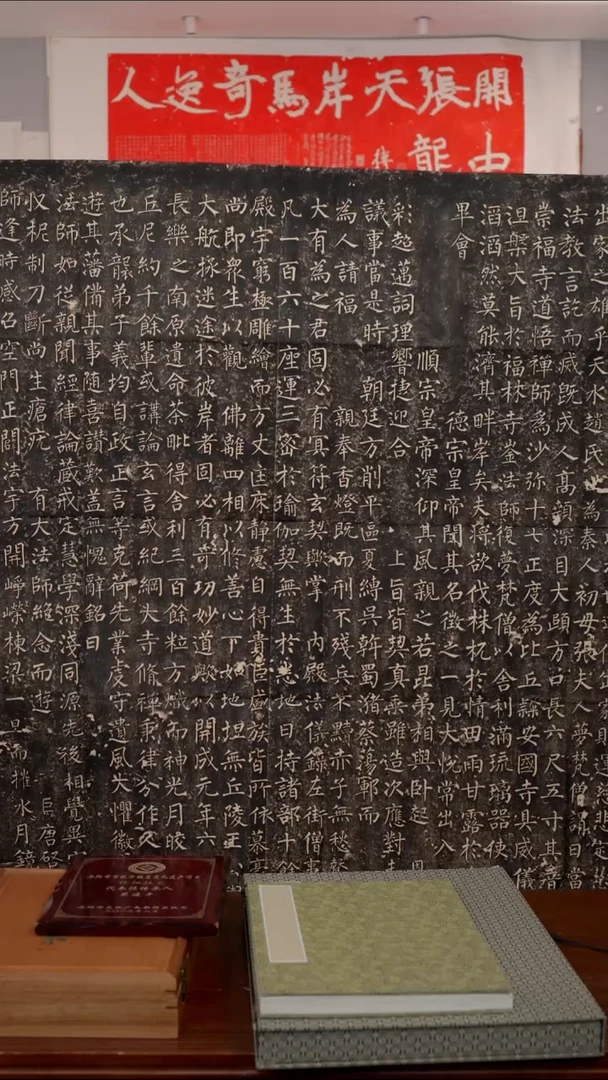 開張天岸馬奇逸人
中龍
之雄乎天水趙氏
為秦人初母張夫人夢梵僧謂曰當
法教言訖而滅既成人高顙深目大頤方口長六尺五寸其音
崇福寺道悟禪師為沙弥十七正度為比丘隸安國寺具威儀
迥槃大旨於福林寺崟法師復夢梵僧以舍利滿琉璃器使
滔滔然莫能濟其畔岸矣夫將欲伐株杌於情田雨甘露於
畢會 德宗皇帝聞其名徵之一見大悅常出入
順宗皇帝深仰其風親之若昆弟相與卧起 恩
彩超邁詞理響捷迎合 上旨皆契真乘雖造次應對未
議事當是時 朝廷方削平區夏縛吳斡蜀瀦蔡蕩鄆而
為人請福 親奉香燈既而刑不殘兵不黷赤子無愁聲
大有為之君固必有冥符玄契歟掌 內殿法儀錄左街僧事
凡一百六十座運三密於瑜伽契無生於悉地日持諸部十餘
殿宇窮極雕繪而方丈匡床靜慮自得貴臣盛族皆所依慕豪
尚即眾生以觀 佛離四相以修善心下如地坦無丘陵王
大航拯迷途於彼岸者固必有奇功妙道歟以開成元年六
長樂之南原遺命荼毗得舍利三百餘粒方熾而神光月皎
丘尼約千餘輩或講論玄言或紀綱大寺脩禪秉律分作人
也承襲弟子義均自政正言等克荷先業虔守遺風大懼徽
遊其藩備其事隨喜讚歎蓋無愧辭銘曰
法師如從親聞經律論藏戒定慧學深淺同源先後相覺異
柅制刀斷尚生瘡疣 有大法師絕念而遊 巨唐啓
師逢時感召空門正闢法宇方開崢嶸棟梁一旦而摧水月鏡
代表性传承人